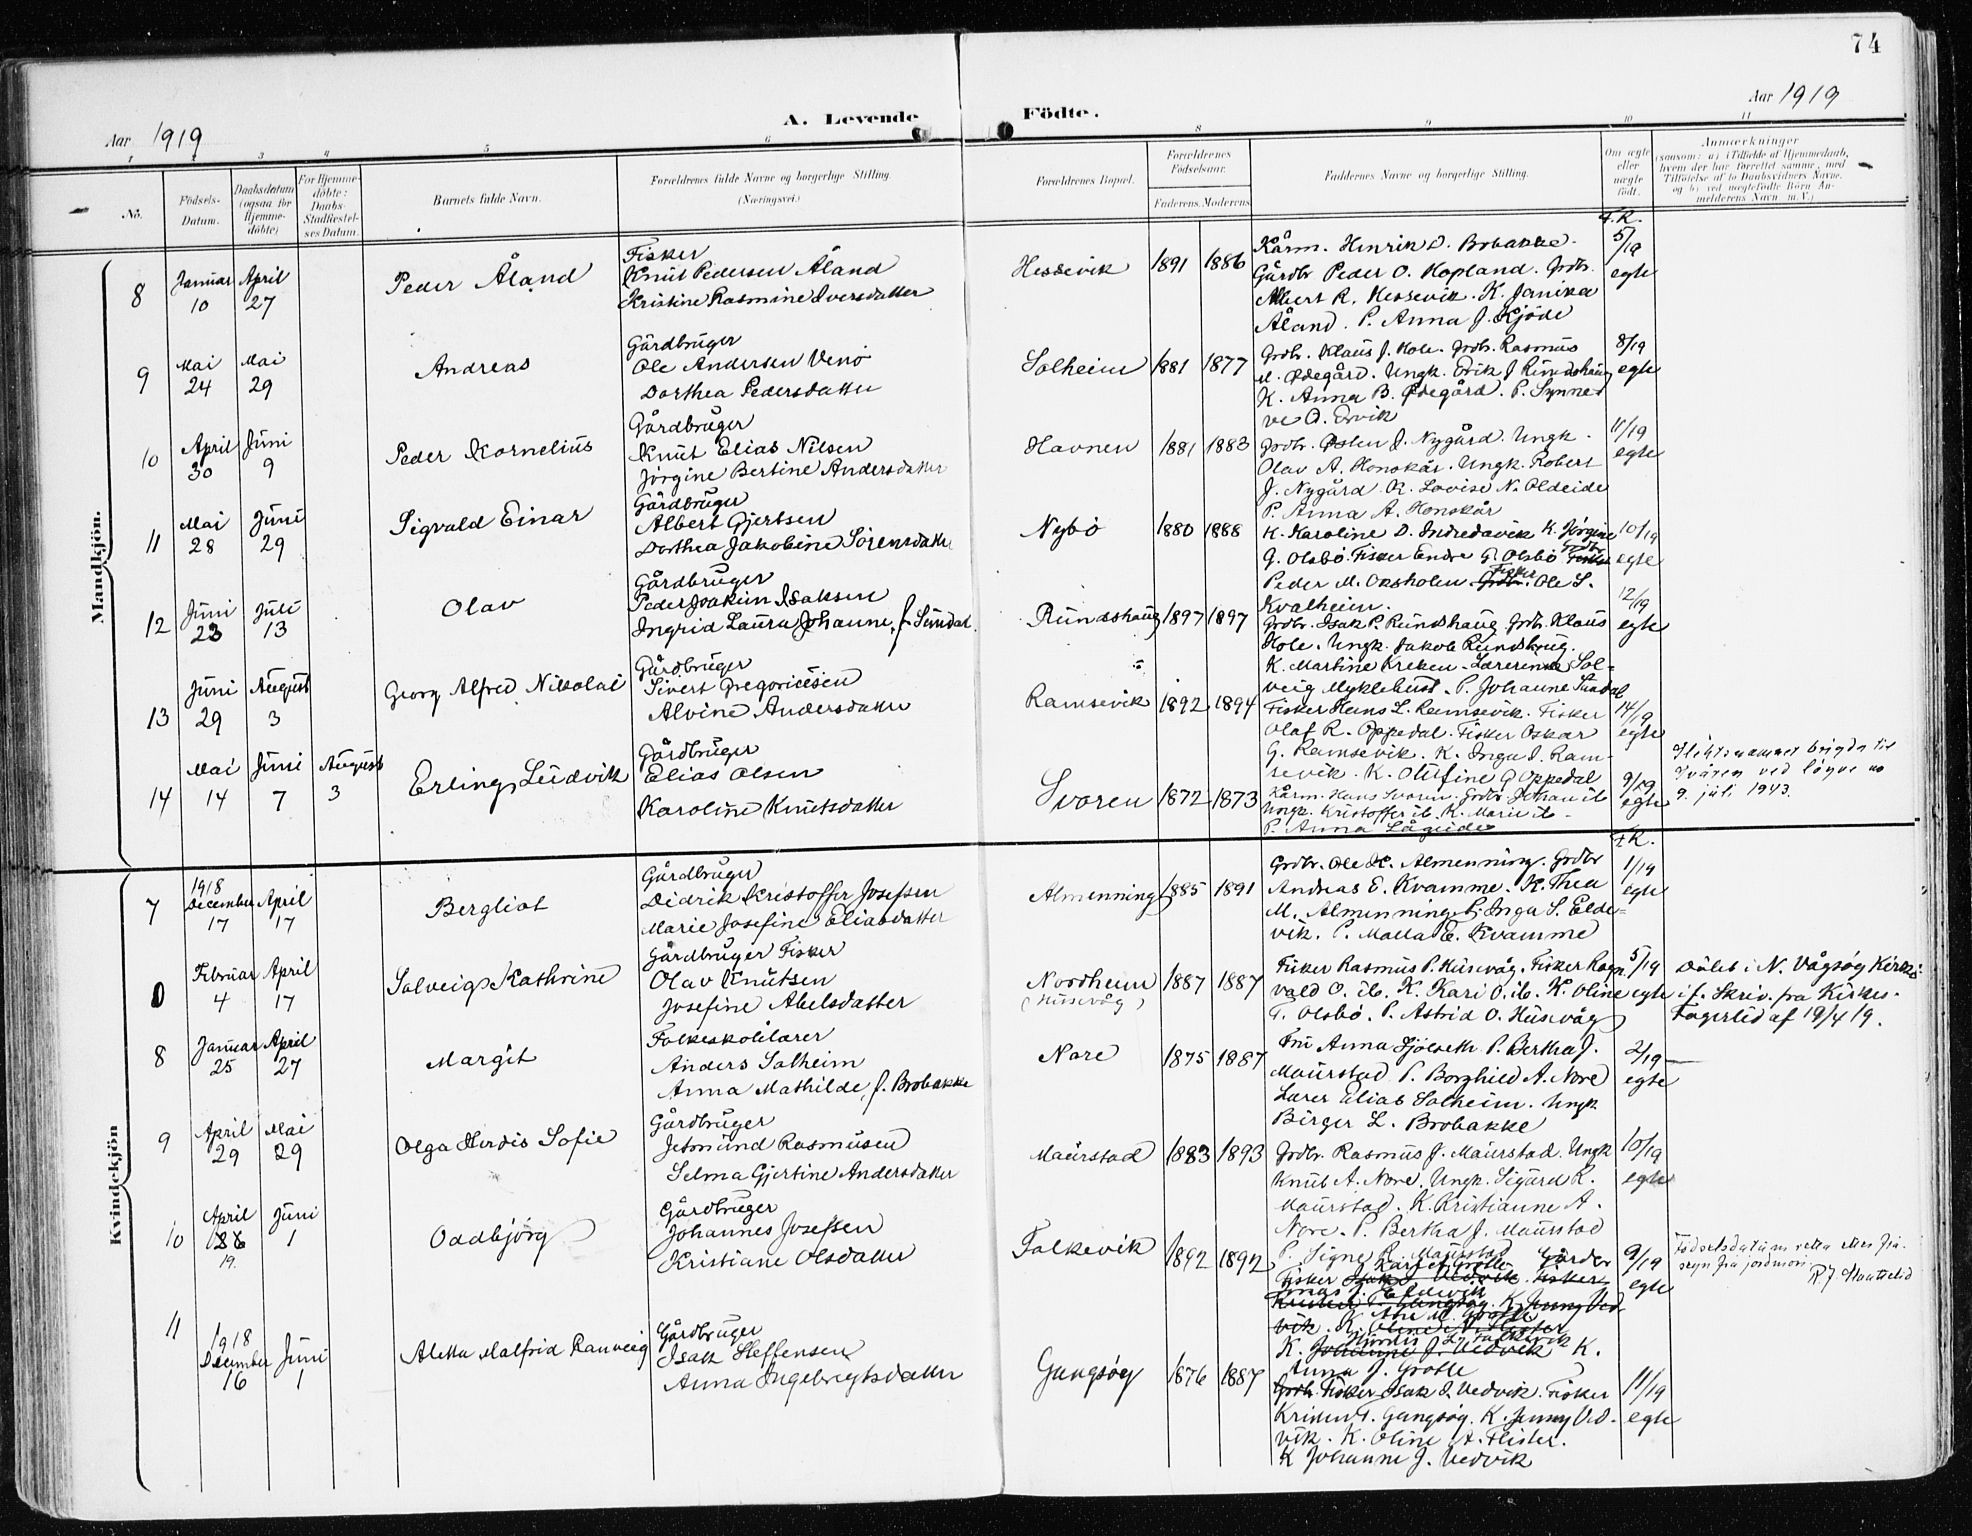 74
Aar 1919
A. Levende Födte.
Aar 1919
1 2 3 4 5 6 8 9 10 11
No.
Födsels-Datum.
Daabsdatum (ogsaa for Hjemme-döbte)
For Hjemme-döbte: Daabs-Stadfæstel-ses Datum.
Barnets fulde Navn.
Forældrenes fulde Navne og borgerlige Stilling. (Næringsvei.)
Forældrenes Bopæl.
Forældrenes Födselsaar.
Faderens. Moderens
Faddernes Navne og borgerlige Stilling.
Om ægte eller uægte födt.
Anmærkninger
(saasom: a) i Tilfælde af Hjemmedaab,
hvem der har forrettet samme, med
Tilföielse af to Daabsvidners Navne,
og b) ved uegtefödte Börn An-
melderens Navn m. V.)
F.R.
Mandkjön.
8 Januar 10 April 27 Peder Åland
Fisker
Knut Pedersen Åland
Kristine Rasmine Iversdatter
Hessevik 1891 1886
Kårm. Henrik D. Brobakke.
Gårdbr Peder O. Hopland. Grdbr.
Albert R. Hessevik. K. Janika
Åland. P. Anna J. Kjöde
5/19 egte
9 Mai 24 Mai 29 Andreas
Gårdbruger
Ole Andersen Venö
Dorthea Pedersdatter
Solheim 1881 1877
Grdbr. Klaus J. Hole. Grdbr. Rasmus
M. Ødegård. Ungk. Erik J Rundshaug
K. Anna B. Ødegård. P. Synne-
ve O. Ervik
8/19 egte
10 April 30 Juni 9 Peder Kornelius
Gårdbruger
Knut Elias Nilsen
Jörgine Bertine Andersdatter
Havnen 1881 1883
Grdbr. Østen J. Nygård. Ungk.
Olav A. Honskår. Ungk. Robert
J. Nygård. K. Lovise N. Oldeide
P. Anna A. Honskår
11/19 egte
11 Mai 28 Juni 29 Sigvald Einar
Gårdbruger
Albert Gjertsen
Dorthea Jakobine Sörensdatter
Nybö 1880 1888
K. Karoline D. Indredavik K. Jörgine
G. Olsbö. Fisker Endre G. Olsbö Fisker Grdbr
Peder M. Oksholen. Grdbr. Fisker Ole S.
Kvalheim.
10/19 egte
12 Juni 23 Juli 13 Olav
Gårdbruger
Peder Joakim Isaksen
Ingrid Laura Johanne, f. Sundal.
Rundshaug 1897 1897
Grdbr. Isak P. Rundshaug Grdbr. Klaus
Hole. Ungk. Jakob Rundshaug.
K. Martine Kreken. Lærerinne Sol-
veig Myklebust. P. Johanne Sundal
12/19 egte
13 Juni 29 August 3 Georg Alfred Nikolai
Gårdbruger
Sivert Gregoriussen
Alvine Andersdatter
Ramsevik 1892 1894
Fisker Hans L. Ramsevik. Fisker
Olaf R. Oppedal. Fisker Oskar
G. Ramsevik. K. Inga J. Ram-
sevik. K. Olufine G Oppedal
14/19 egte
14 Mai 14 Juni 7 August 3 Erling Ludvik
Gårdbruger
Elias Olsen
Karoline Knutsdatter
Svoren 1872 1873
Kårm. Hans Svoren. Grdbr. Johan ib
Ungk. Kristoffer ib. K. Marie ib.
P. Anna Lågeide
9/19 egte
Slektsnamnet brigda til
Svären ved löyve
9. juli 1943.
F.R.
Kvindekjön
7 1918 December 17 April 17 Bergliot
Gårdbruger
Didrik Kristoffer Josefsen
Marie Josefine Eliasdatter
Almenning 1885 1891
Grdbr. Ole H. Almenning. Grdbr
Andreas E. Kvamme. K. Thea
M. Almenning. P. Inga S. Elde-
vik. P. Malla E. Kvamme
1/19 egte
0 Februar 4 April 17 Solveig Kathrine
Gårdbruger Fisker
Olav Knutsen
Josefine Abelsdatter
Nordheim (Husevåg) 1887 1887
Fisker Rasmus P. Husevåg. Fisker Ragn-
vald O. ib. K. Kari O. ib. K. Oline
T. Olsbö. P. Astrid O. Husevåg
5/19 egte
Döbt i N. Vågsöy Kirke
i f. Skriv. fra Kirkes-
tagertid af 19/4 19.
8 Januar 25 April 27 Margit
Folkeskolelærer
Anders Solheim
Anna Mathilde, f. Brobakke
Nore 1875 1887
Fru Anna Sjölseth P. Bertha J.
Maurstad P. Borghild A. Nore
Lærer Elias Solheim. Ungk.
Birger L. Brobakke
2/19 egte
9 April 29 Mai 29 Olga Herdis Sofie
Gårdbruger
Jetmund Rasmusen
Selma Gjertine Andersdatter
Maurstad 1883 1893
Grdbr. Rasmus J. Maurstad. Ungk
Knut A. Nore. Ungk. Sigurd R.
Maurstad. K. Kristianne A.
Nore. P. Bertha J. Maurstad
P. Signe R. Maurstad
10/19 egte
10 April 19. Juni 1 Oddbjörg
Gårdbruger
Johannes Josefsen
Kristiane Olsdatter
Falkevik 1892 1892
Fisker Isak J. Vedvik Fisker Gårdbr
Kristen T. Gangsöy. K. Jenny Ved-
vik. K. Oline A. Flister
K. Johanne J. Vedvik K.
Anna J. Grotle
9/19 egte
Födselsdatum retta etter
fra jordmori
11 1918 December 16 Juni 1 Aletta Malfrid Ranveig
Gårdbruger
Isak Steffensen
Anna Ingebrigtsdatter
Gangsöy 1876 1887
Grdbr. Fisker Isak J. Vedvik. Fisker
Kristen T. Gangsöy. K. Jenny Ved-
vik. K. Oline A. Flister.
K Johanne J. Vedvik
11/19 egte